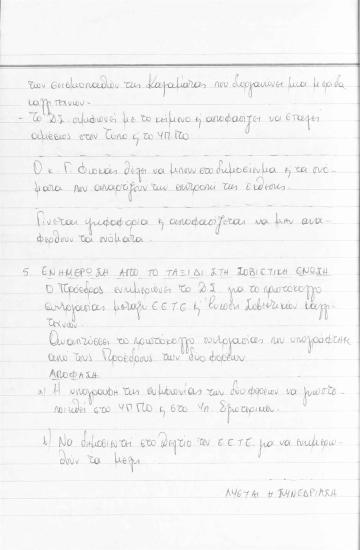 των σεισμοπαθών της Καλαμάτας που διοργανώνει μια μερίδα
καλλιτεχνών.
- Το Δ.Σ. συμφωνεί με το κείμενο η αποφασίζει να σταλεί
αμέσως στον Τύπο η το ΥΠ.ΠΟ.
Ο κ. Γ. θέλει να μπουν στο δημοσίευμα η τα ονό-
ματα που απαρτίζουν την επιτροπή της έκθεσης.
Γίνεται ψηφοφορία η αποφασίζεται να μην ανα-
φερθούν τα ονόματα.
5. ΕΝΗΜΕΡΩΣΗ ΑΠΟ ΤΟ ΤΑΞΙΔΙ ΣΤΗ ΣΟΒΙΕΤΙΚΗ ΕΝΩΣΗ
Ο Πρόεδρος ενημερώνει το Δ.Σ. για το πρωτόκολλο
συνεργασίας μεταξύ Ε.Ε.Τ.Ε. η Ένωση Σοβιετικών Καλλι-
τεχνών.
Αναπτύσσει το πρωτόκολλο συνεργασίας που υπογράφτηκε
από τους Προέδρους των δύο φορέων.
ΑΠΟΦΑΣΗ
α) Η υπογραφή της συμφωνίας των δύο φορέων να γνωστο-
ποιηθεί στο ΥΠ.ΠΟ η στο Υπ. Εξωτερικών.
β) Να δημοσιευτεί στο Δελτίο του Ε.Ε.Τ.Ε. για να ενημερω-
θούν τα μέλη.
ΛΥΕΤΑΙ Η ΣΥΝΕΔΡΙΑΣΗ